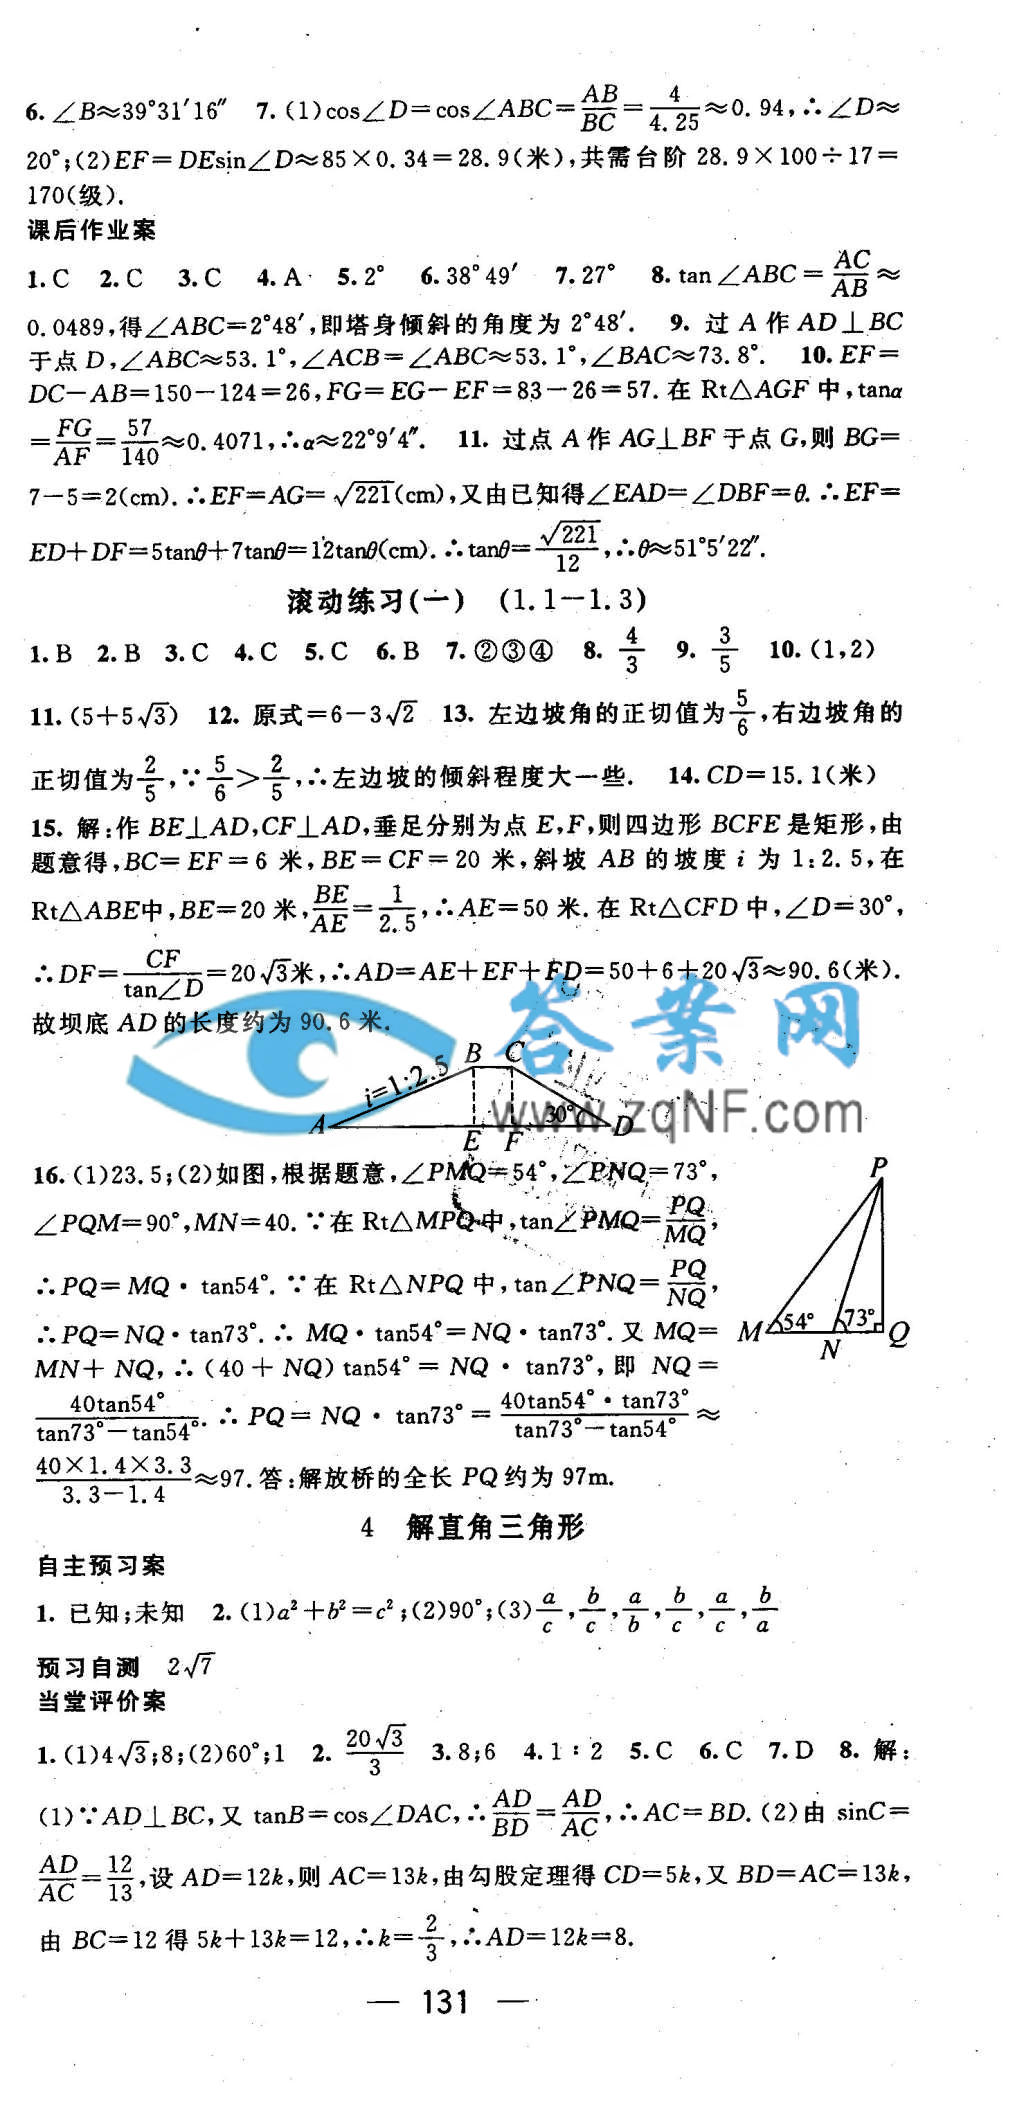 6. ∠B≈39°31′16″ 7. (1)cos∠D=cos∠ABC=AB/BC=4/4.25≈0.94,∴∠D≈
20°;(2)EF=DEsin∠D≈85×0.34=28.9(米),共需台阶 28.9×100÷17=
170(级).
课后作业案
1. C 2. C 3. C 4. A 5. 2° 6. 38°49′ 7. 27° 8. tan∠ABC=AC/AB≈
0.0489,得∠ABC=2°48′,即塔身倾斜的角度为 2°48′. 9. 过 A 作 AD⊥BC
于点 D,∠ABC≈53.1°,∠ACB=∠ABC≈53.1°,∠BAC≈73.8°. 10. EF=
DC-AB=150-124=26,FG=EG-EF=83-26=57.在 Rt△AGF 中,tanα
=FG/AF=57/140≈0.4071,∴α≈22°9′4″. 11. 过点 A 作 AG⊥BF 于点 G,则 BG=
7-5=2(cm).∴EF=AG=√221(cm),又由已知得∠EAD=∠DBF=θ.∴EF=
ED+DF=5tanθ+7tanθ=12tanθ(cm).∴tanθ=√221/12,∴θ≈51°5′22″.
滚动练习(一) (1.1-1.3)
1. B 2. B 3. C 4. C 5. C 6. B 7. ②③④ 8. 4/3 9. 3/5 10. (1,2)
11. (5+5√3) 12. 原式=6-3√2 13. 左边坡角的正切值为5/6,右边坡角的
正切值为2/5,∵5/6>2/5,∴左边坡的倾斜程度大一些. 14. CD=15.1(米)
15. 解:作 BE⊥AD,CF⊥AD,垂足分别为点 E,F,则四边形 BCFE 是矩形,由
题意得,BC=EF=6 米,BE=CF=20 米,斜坡 AB 的坡度 i 为 1:2.5,在
Rt△ABE中,BE=20 米,BE/AE=1/2.5,∴AE=50 米.在 Rt△CFD 中,∠D=30°,
∴DF=CF/tan∠D=20√3米,∴AD=AE+EF+FD=50+6+20√3≈90.6(米).
故坝底 AD 的长度约为 90.6 米.
答案网
www.zqNF.com
B C
i=1:2.5
30°
A E F D
16. (1)23.5;(2)如图,根据题意,∠PMQ=54°,∠PNQ=73°,
∠PQM=90°,MN=40.∵在 Rt△MPQ 中,tan∠PMQ=PQ/MQ,
∴PQ=MQ·tan54°.∵在 Rt△NPQ 中,tan∠PNQ=PQ/NQ,
∴PQ=NQ·tan73°.∴MQ·tan54°=NQ·tan73°.又 MQ=
MN+NQ,∴(40+NQ)tan54°=NQ·tan73°,即 NQ=
40tan54°/(tan73°-tan54°).∴PQ=NQ·tan73°=40tan54°·tan73°/(tan73°-tan54°)≈
40×1.4×3.3/(3.3-1.4)≈97.答:解放桥的全长 PQ 约为 97m.
P
M 54° 73° Q
N
4 解直角三角形
自主预习案
1. 已知;未知 2. (1)a²+b²=c²;(2)90°;(3)a/c,b/c,a/b,b/c,a/c,b/a
预习自测 2√7
当堂评价案
1. (1)4√3;8;(2)60°;1 2. 20√3/3 3. 8;6 4. 1∶2 5. C 6. C 7. D 8. 解:
(1)∵AD⊥BC,又 tanB=cos∠DAC,∴AD/BD=AD/AC,∴AC=BD.(2)由 sinC=
AD/AC=12/13,设 AD=12k,则 AC=13k,由勾股定理得 CD=5k,又 BD=AC=13k,
由 BC=12 得 5k+13k=12,∴k=2/3,∴AD=12k=8.
— 131 —